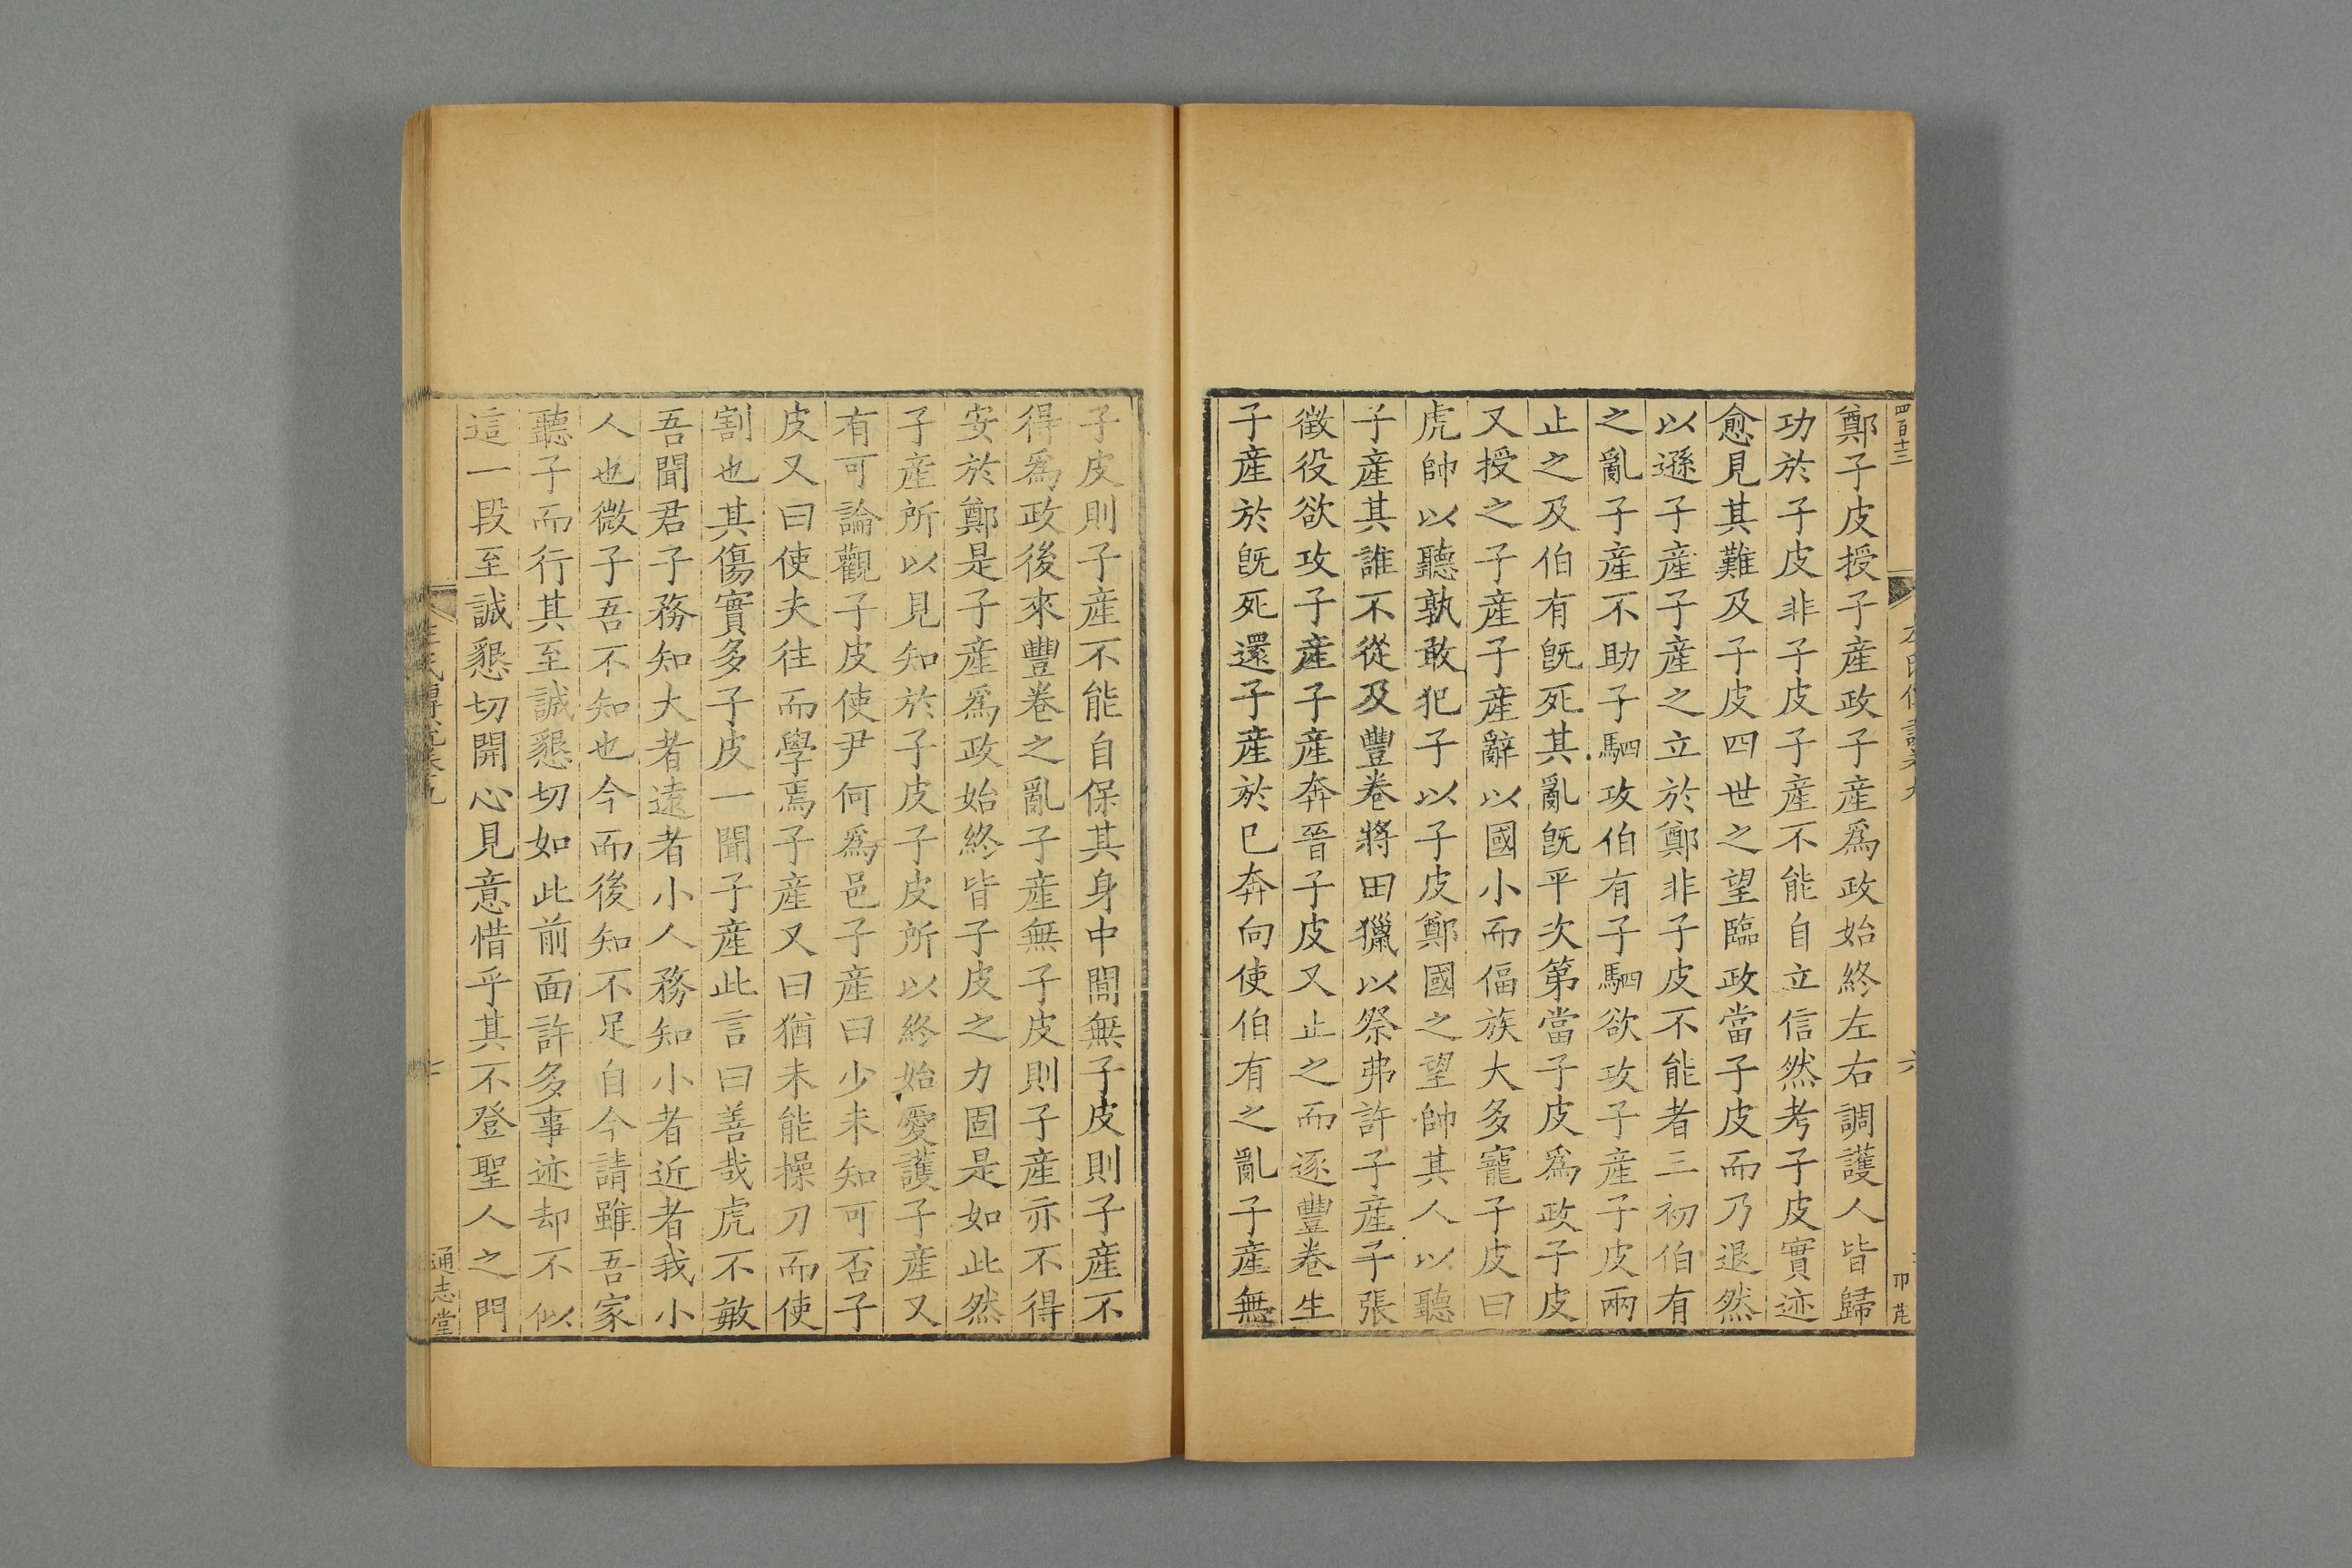 四百十三
六
卬芘
鄭子皮授子産政子産爲政始終左右調護人皆歸
功於子皮非子皮子産不能自立信然考子皮實迹
愈見其難及子皮四世之望臨政當子皮而乃退然
以遜子産子産之立於鄭非子皮不能者三初伯有
之亂子産不助子駟攻伯有子駟欲攻子産子皮兩
止之及伯有旣死其亂旣平次第當子皮爲政子皮
又授之子産子産辭以國小而偪族大多寵子皮曰
虎帥以聽孰敢犯子以子皮鄭國之望帥其人以聽
子産其誰不從及豐卷將田獵以祭弗許子産子張
徵役欲攻子産子産奔晉子皮又止之而逐豐卷生
子産於旣死還子産於已奔向使伯有之亂子産無
子皮則子産不能自保其身中閒無子皮則子産不
得爲政後來豐卷之亂子産無子皮則子産亦不得
安於鄭是子産爲政始終皆子皮之力固是如此然
子産所以見知於子皮子皮所以終始愛護子産又
有可論觀子皮使尹何爲邑子産曰少未知可否子
皮又曰使夫往而學焉子産又曰猶未能操刀而使
割也其傷實多子皮一聞子産此言曰善哉虎不敏
吾聞君子務知大者遠者小人務知小者近者我小
人也微子吾不知也今而後知不足自今請雖吾家
聽子而行其至誠懇切如此前面許多事迹却不似
這一段至誠懇切開心見意惜乎其不登聖人之門
通志堂